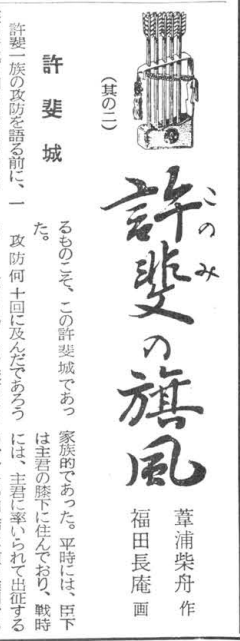 (其の二)
許斐の旗風
このみ
葦浦柴舟 作
福田長庵 画
許斐城
許斐一族の攻防を語る前に、一
るものこそ、この許斐城であっ
た。
攻防何十回に及んだであろう
家族的であった。平時には、臣下
は主君の膝下に住んでおり、戦時
には、主君に率いられて出征する